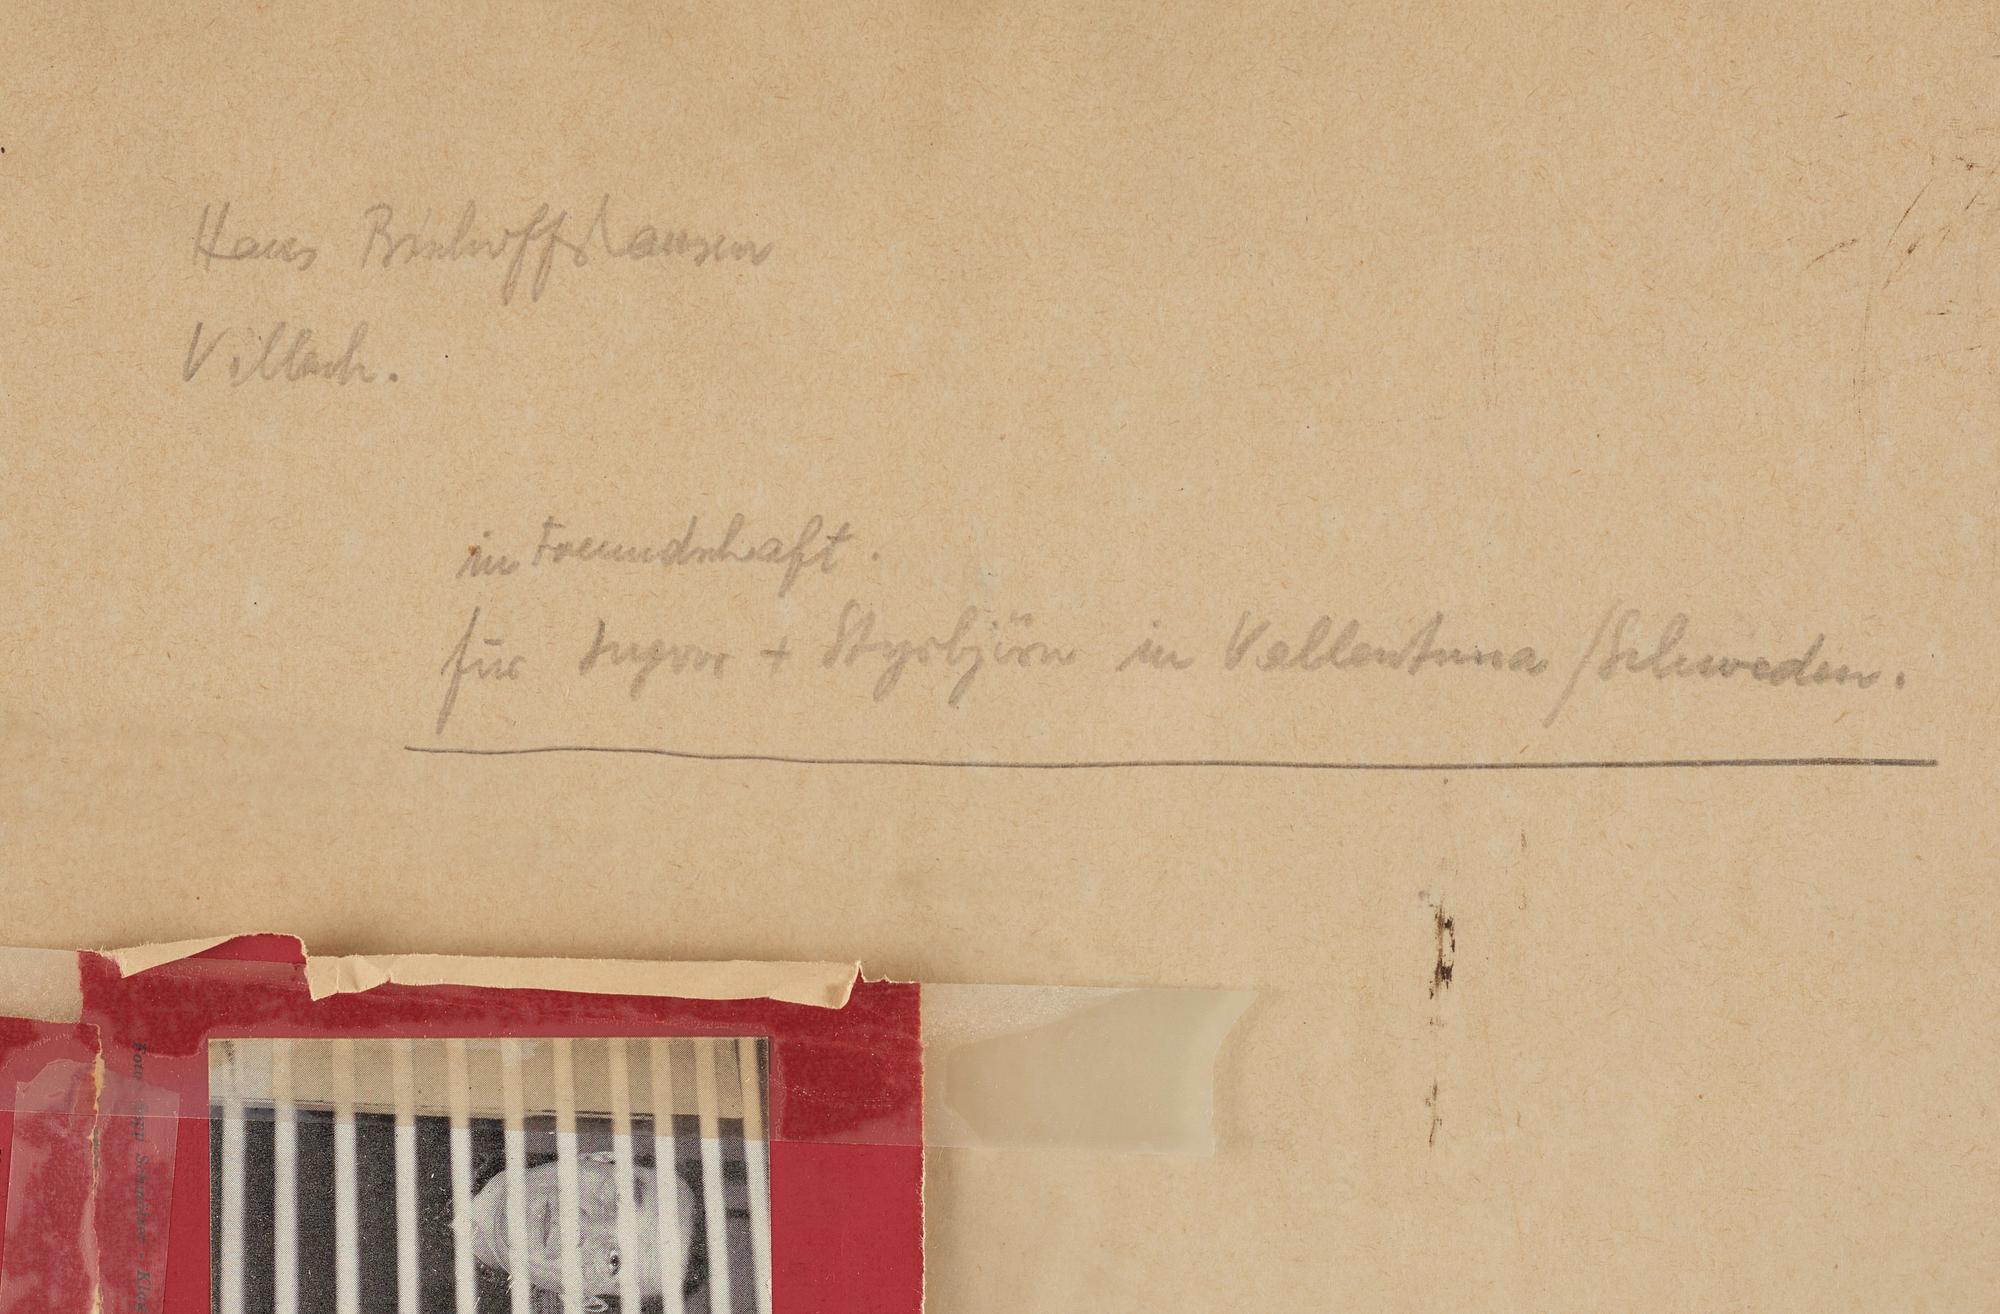 Hans Bischoffshausen
Villach.
in Freundschaft.
für Ingvor + Styrbjörn in Vallentuna / Schweden.
Foto Sepp Schmölzer - Klag